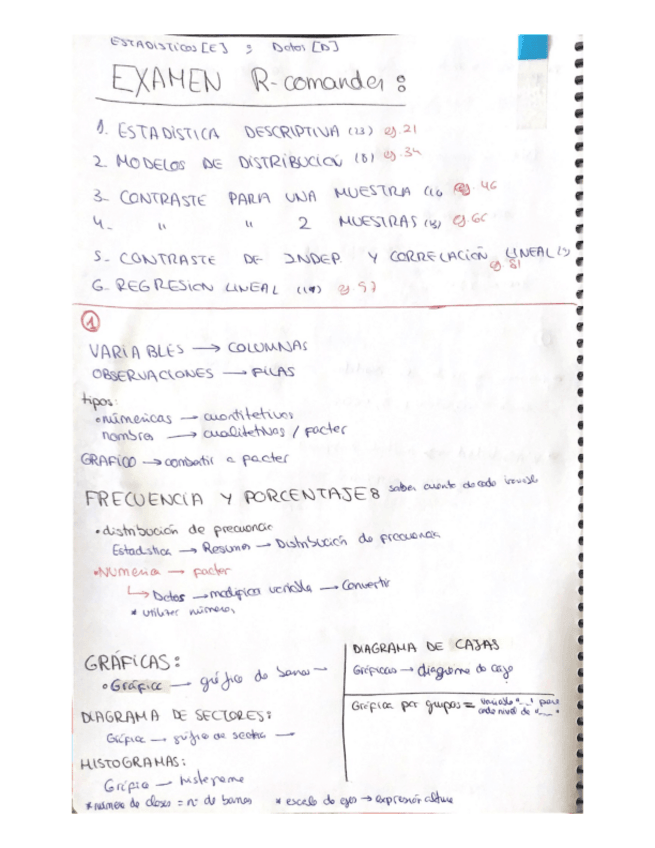 ESTADISTICOS [E] ; Datos [D]
EXAMEN R-comander :
1. ESTADISTICA DESCRIPTIVA (23) ej. 21
2. MODELOS DE DISTRIBUCIÓN (8) ej. 34
3- CONTRASTE PARA UNA MUESTRA ej. 46
4- " " 2 MUESTRAS ej. 66
5- CONTRASTE DE INDEP. Y CORRELACIÓN LINEAL
ej. 81
6- REGRESION LINEAL ej. 97
1
VARIABLES → COLUMNAS
OBSERVACIONES → FILAS
tipos:
• númericas → cuantitativos
nombres → cualitativas / facter
GRAFICO → a facter
FRECUENCIA Y PORCENTAJES saber cuanto de cada
• distribución de frecuencia
Estadística → Resumen → Distribución de frecuencia
• Númerica → facter
↳ Datos → modifica variable → Convertir
* utilizar números
GRÁFICAS:
• Gráfica → gráfico de barras →
DIAGRAMA DE SECTORES:
Gráfica → gráfico de sectores →
HISTOGRAMAS:
Gráfica → histograma
* número de clases = nº de barras * escala de ejes → expresión altura
DIAGRAMA DE CAJAS
Gráficas → diagrama de caja
Gráfica por grupos = variable "__" para
cada nivel de "__"